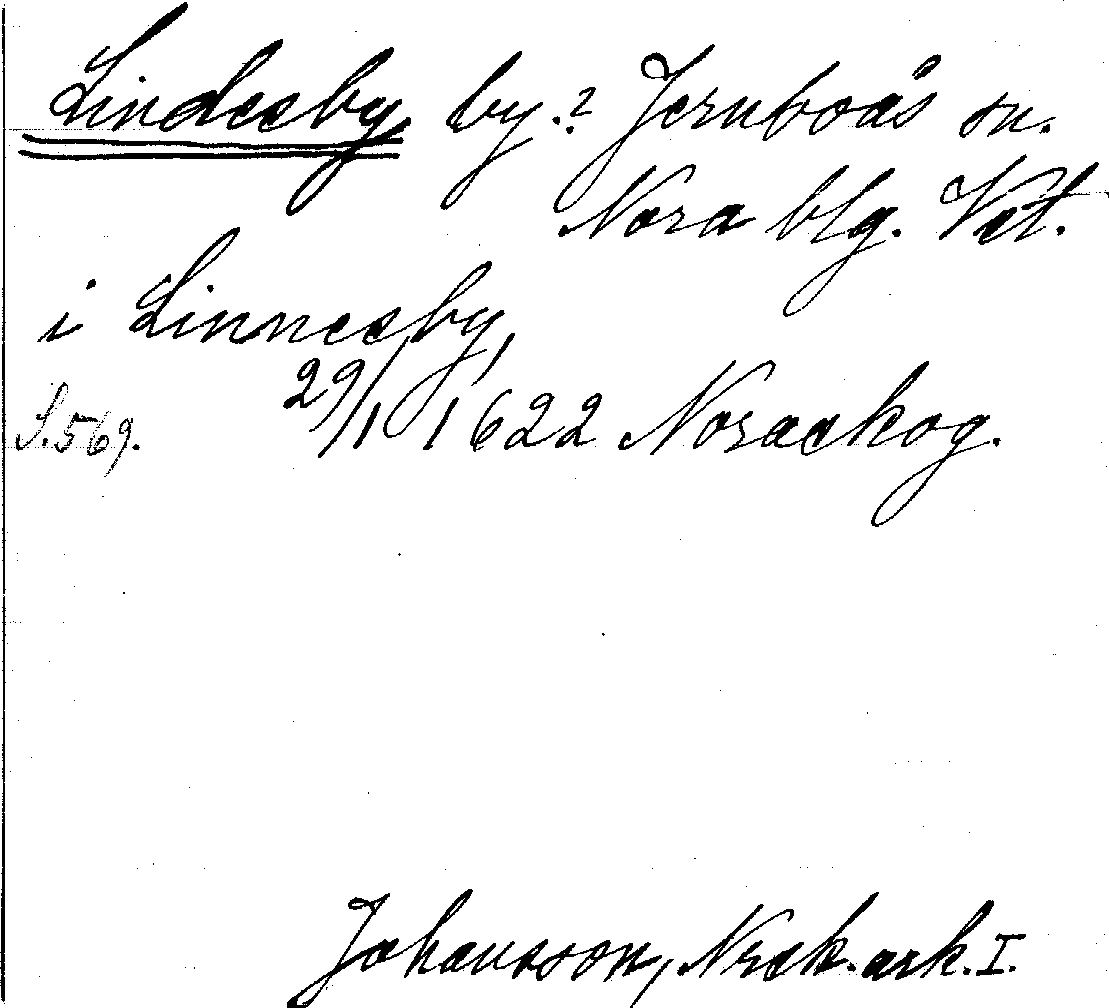 Lindesby by.? Jernboås sn.
Nora blg. Vstl.
i Linnesby,
S. 569. 29/1 1622 Noraskog.
Johansson, Nrsk. ark. I.